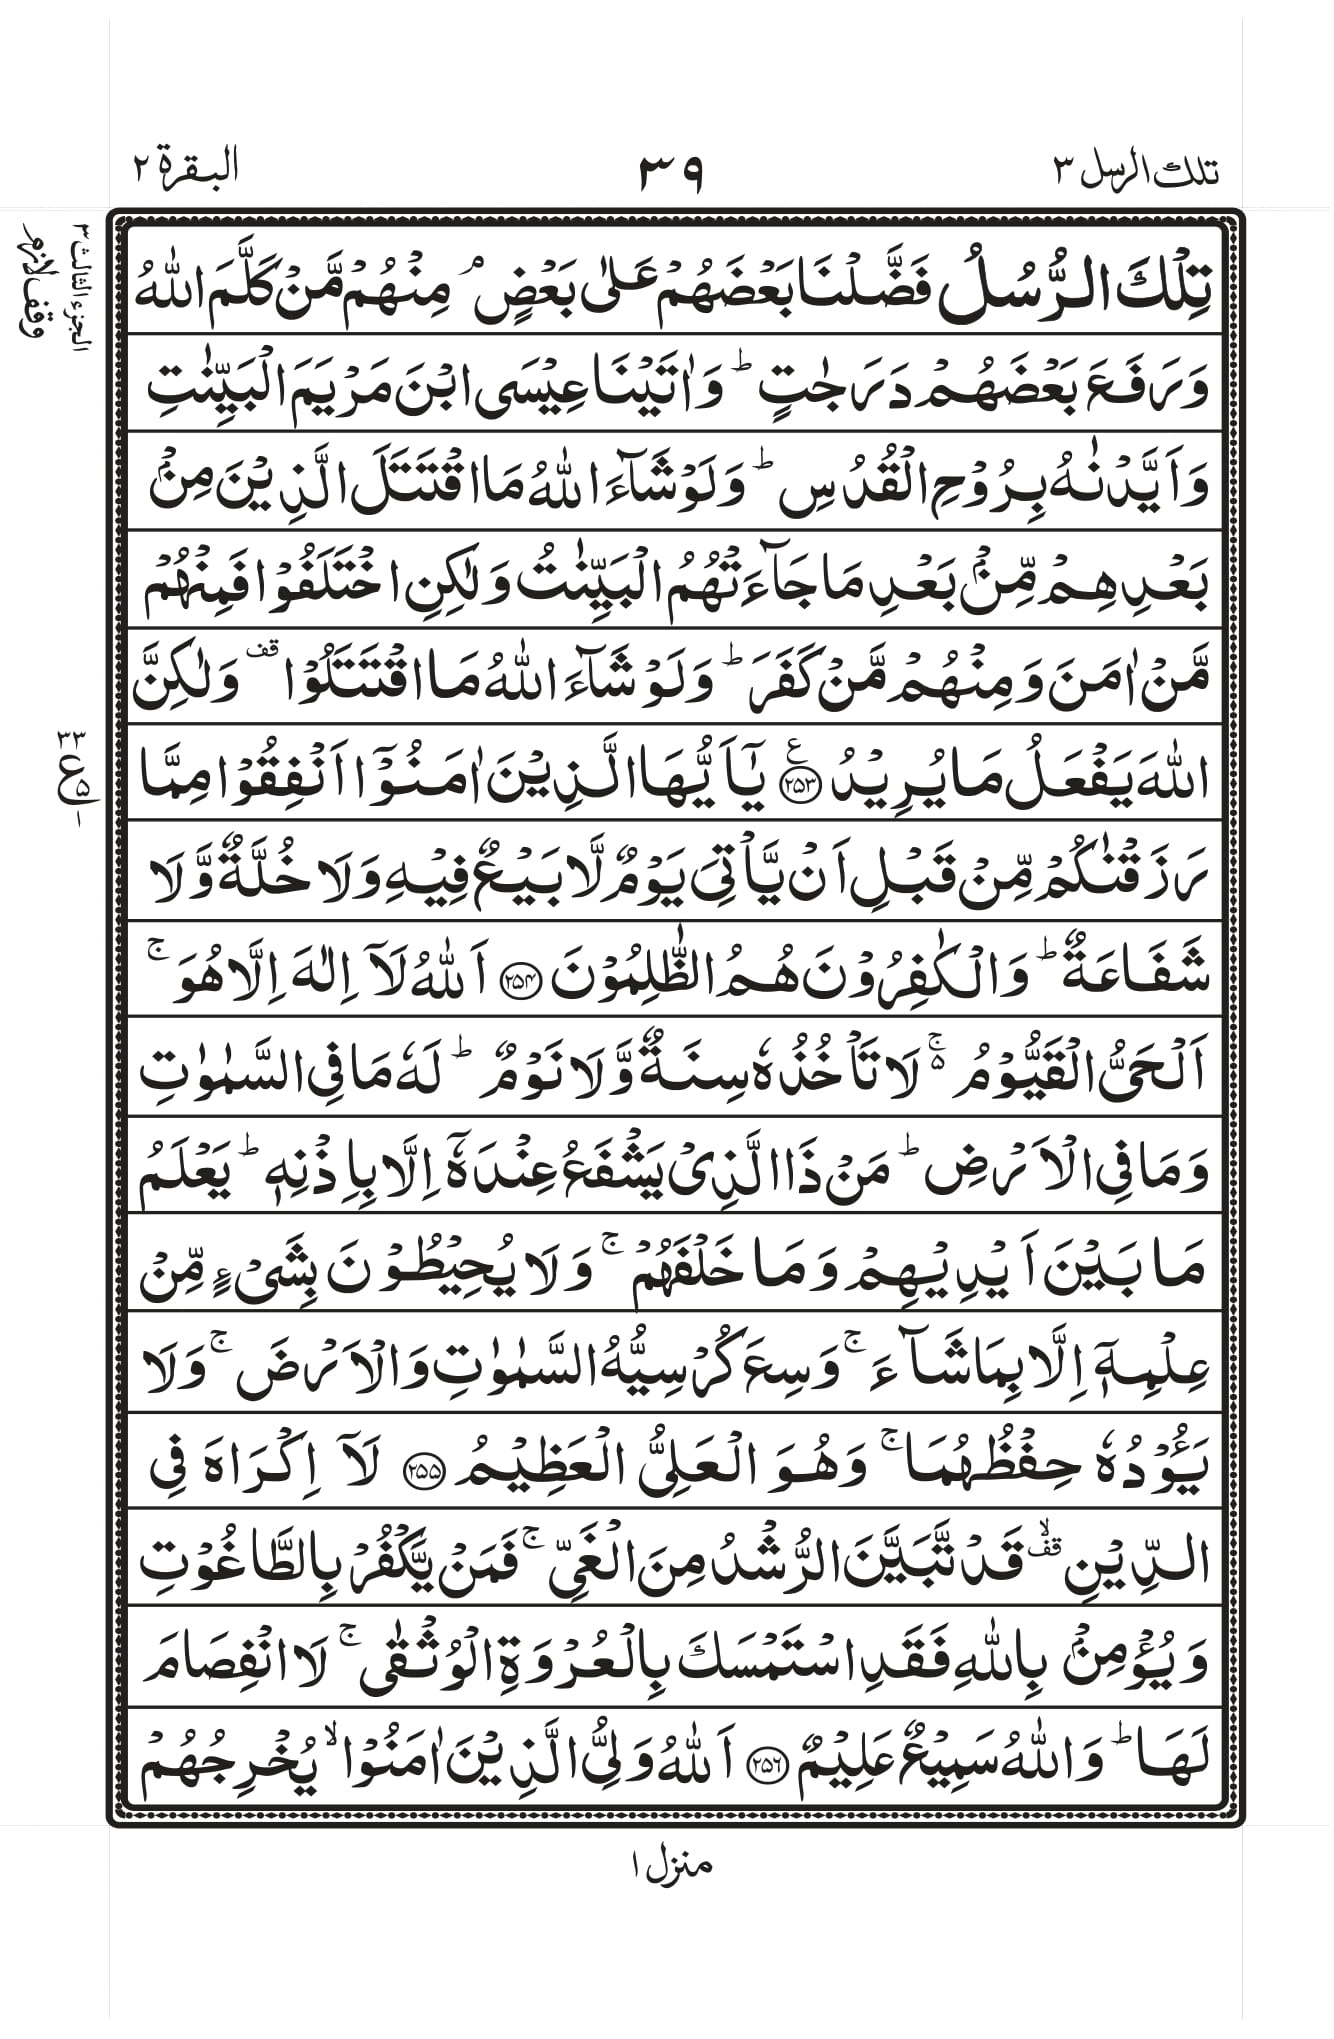 تلك الرسل ٣
٣٩
البقرة ٢
الجزء الثالث ٣
وقف لازم
تِلۡكَ الرُّسُلُ فَضَّلۡنَا بَعۡضَهُمۡ عَلٰى بَعۡضٍ ۘ مِنۡهُمۡ مَّنۡ كَلَّمَ اللّٰهُ
وَرَفَعَ بَعۡضَهُمۡ دَرَجٰتٍ ؕ وَاٰتَيۡنَا عِيۡسَى ابۡنَ مَرۡيَمَ الۡبَيِّنٰتِ
وَاَيَّدۡنٰهُ بِرُوۡحِ الۡقُدُسِ ؕ وَلَوۡ شَآءَ اللّٰهُ مَا اقۡتَتَلَ الَّذِيۡنَ مِنۡۢ
بَعۡدِهِمۡ مِّنۡۢ بَعۡدِ مَا جَآءَتۡهُمُ الۡبَيِّنٰتُ وَلٰكِنِ اخۡتَلَفُوۡا فَمِنۡهُمۡ
مَّنۡ اٰمَنَ وَمِنۡهُمۡ مَّنۡ كَفَرَ ؕ وَلَوۡ شَآءَ اللّٰهُ مَا اقۡتَتَلُوۡا قف وَلٰكِنَّ
اللّٰهَ يَفۡعَلُ مَا يُرِيۡدُ ع ﴿۲۵۳﴾ يٰۤاَيُّهَا الَّذِيۡنَ اٰمَنُوۡۤا اَنۡفِقُوۡا مِمَّا
٣٣
ع ۵
١
رَزَقۡنٰكُمۡ مِّنۡ قَبۡلِ اَنۡ يَّاۡتِىَ يَوۡمٌ لَّا بَيۡعٌ فِيۡهِ وَلَا خُلَّةٌ وَّلَا
شَفَاعَةٌ ؕ وَالۡكٰفِرُوۡنَ هُمُ الظّٰلِمُوۡنَ ﴿۲۵۴﴾ اَللّٰهُ لَاۤ اِلٰهَ اِلَّا هُوَ ۚ
اَلۡحَىُّ الۡقَيُّوۡمُ ۵ۚ لَا تَاۡخُذُهٗ سِنَةٌ وَّلَا نَوۡمٌ ؕ لَهٗ مَا فِى السَّمٰوٰتِ
وَمَا فِى الۡاَرۡضِ ؕ مَنۡ ذَا الَّذِىۡ يَشۡفَعُ عِنۡدَهٗۤ اِلَّا بِاِذۡنِهٖ ؕ يَعۡلَمُ
مَا بَيۡنَ اَيۡدِيۡهِمۡ وَمَا خَلۡفَهُمۡ ۚ وَلَا يُحِيۡطُوۡنَ بِشَىۡءٍ مِّنۡ
عِلۡمِهٖۤ اِلَّا بِمَا شَآءَ ۚ وَسِعَ كُرۡسِيُّهُ السَّمٰوٰتِ وَالۡاَرۡضَ ۚ وَلَا
يَـُٔوۡدُهٗ حِفۡظُهُمَا ۚ وَهُوَ الۡعَلِىُّ الۡعَظِيۡمُ ﴿۲۵۵﴾ لَاۤ اِكۡرَاهَ فِى
الدِّيۡنِ قفۙ قَدۡ تَّبَيَّنَ الرُّشۡدُ مِنَ الۡغَىِّ ۚ فَمَنۡ يَّكۡفُرۡ بِالطَّاغُوۡتِ
وَيُؤۡمِنۡۢ بِاللّٰهِ فَقَدِ اسۡتَمۡسَكَ بِالۡعُرۡوَةِ الۡوُثۡقٰى ۚ لَا انۡفِصَامَ
لَهَا ؕ وَاللّٰهُ سَمِيۡعٌ عَلِيۡمٌ ﴿۲۵۶﴾ اَللّٰهُ وَلِىُّ الَّذِيۡنَ اٰمَنُوۡا ۙ يُخۡرِجُهُمۡ
منزل ١